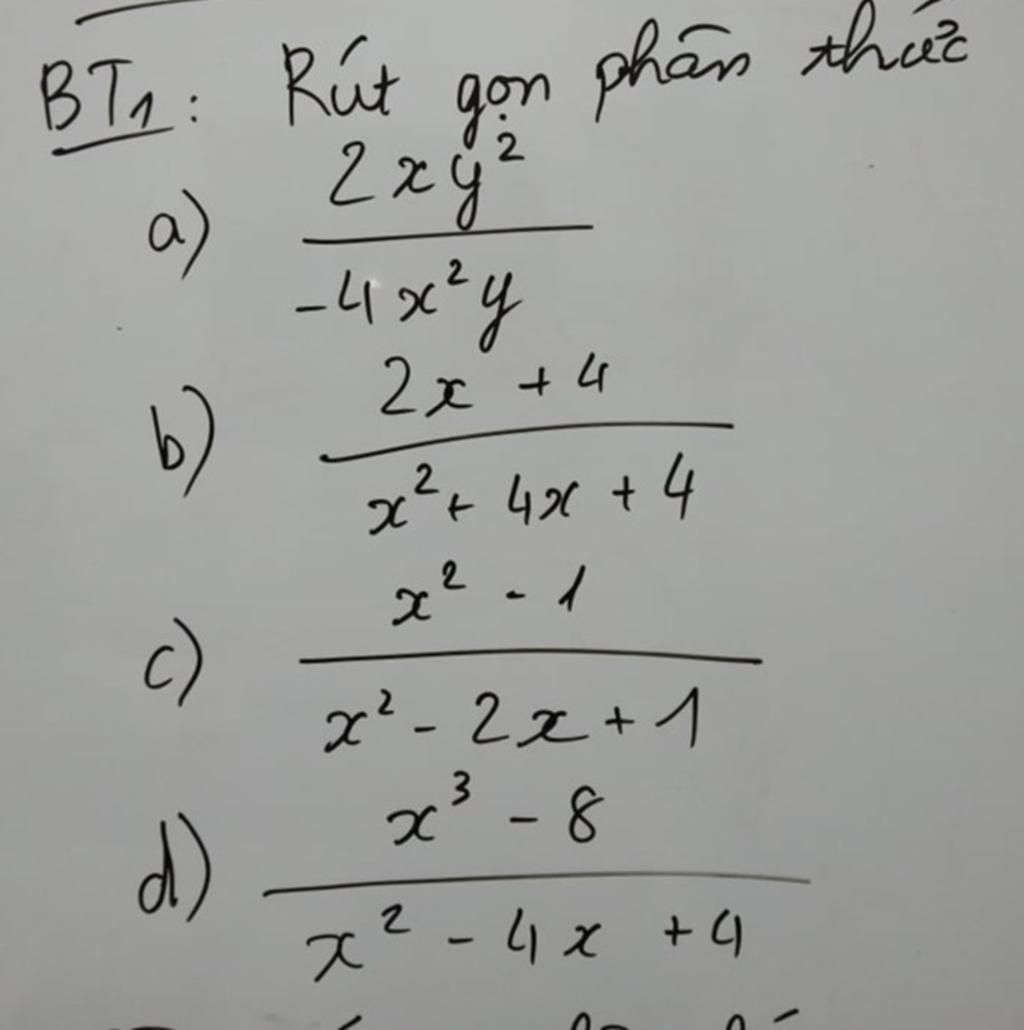 BT1: Rút gọn phân thức
a) 2xy²
-4x²y
b) 2x + 4
x² + 4x + 4
c) x² - 1
x² - 2x + 1
d) x³ - 8
x² - 4x + 4